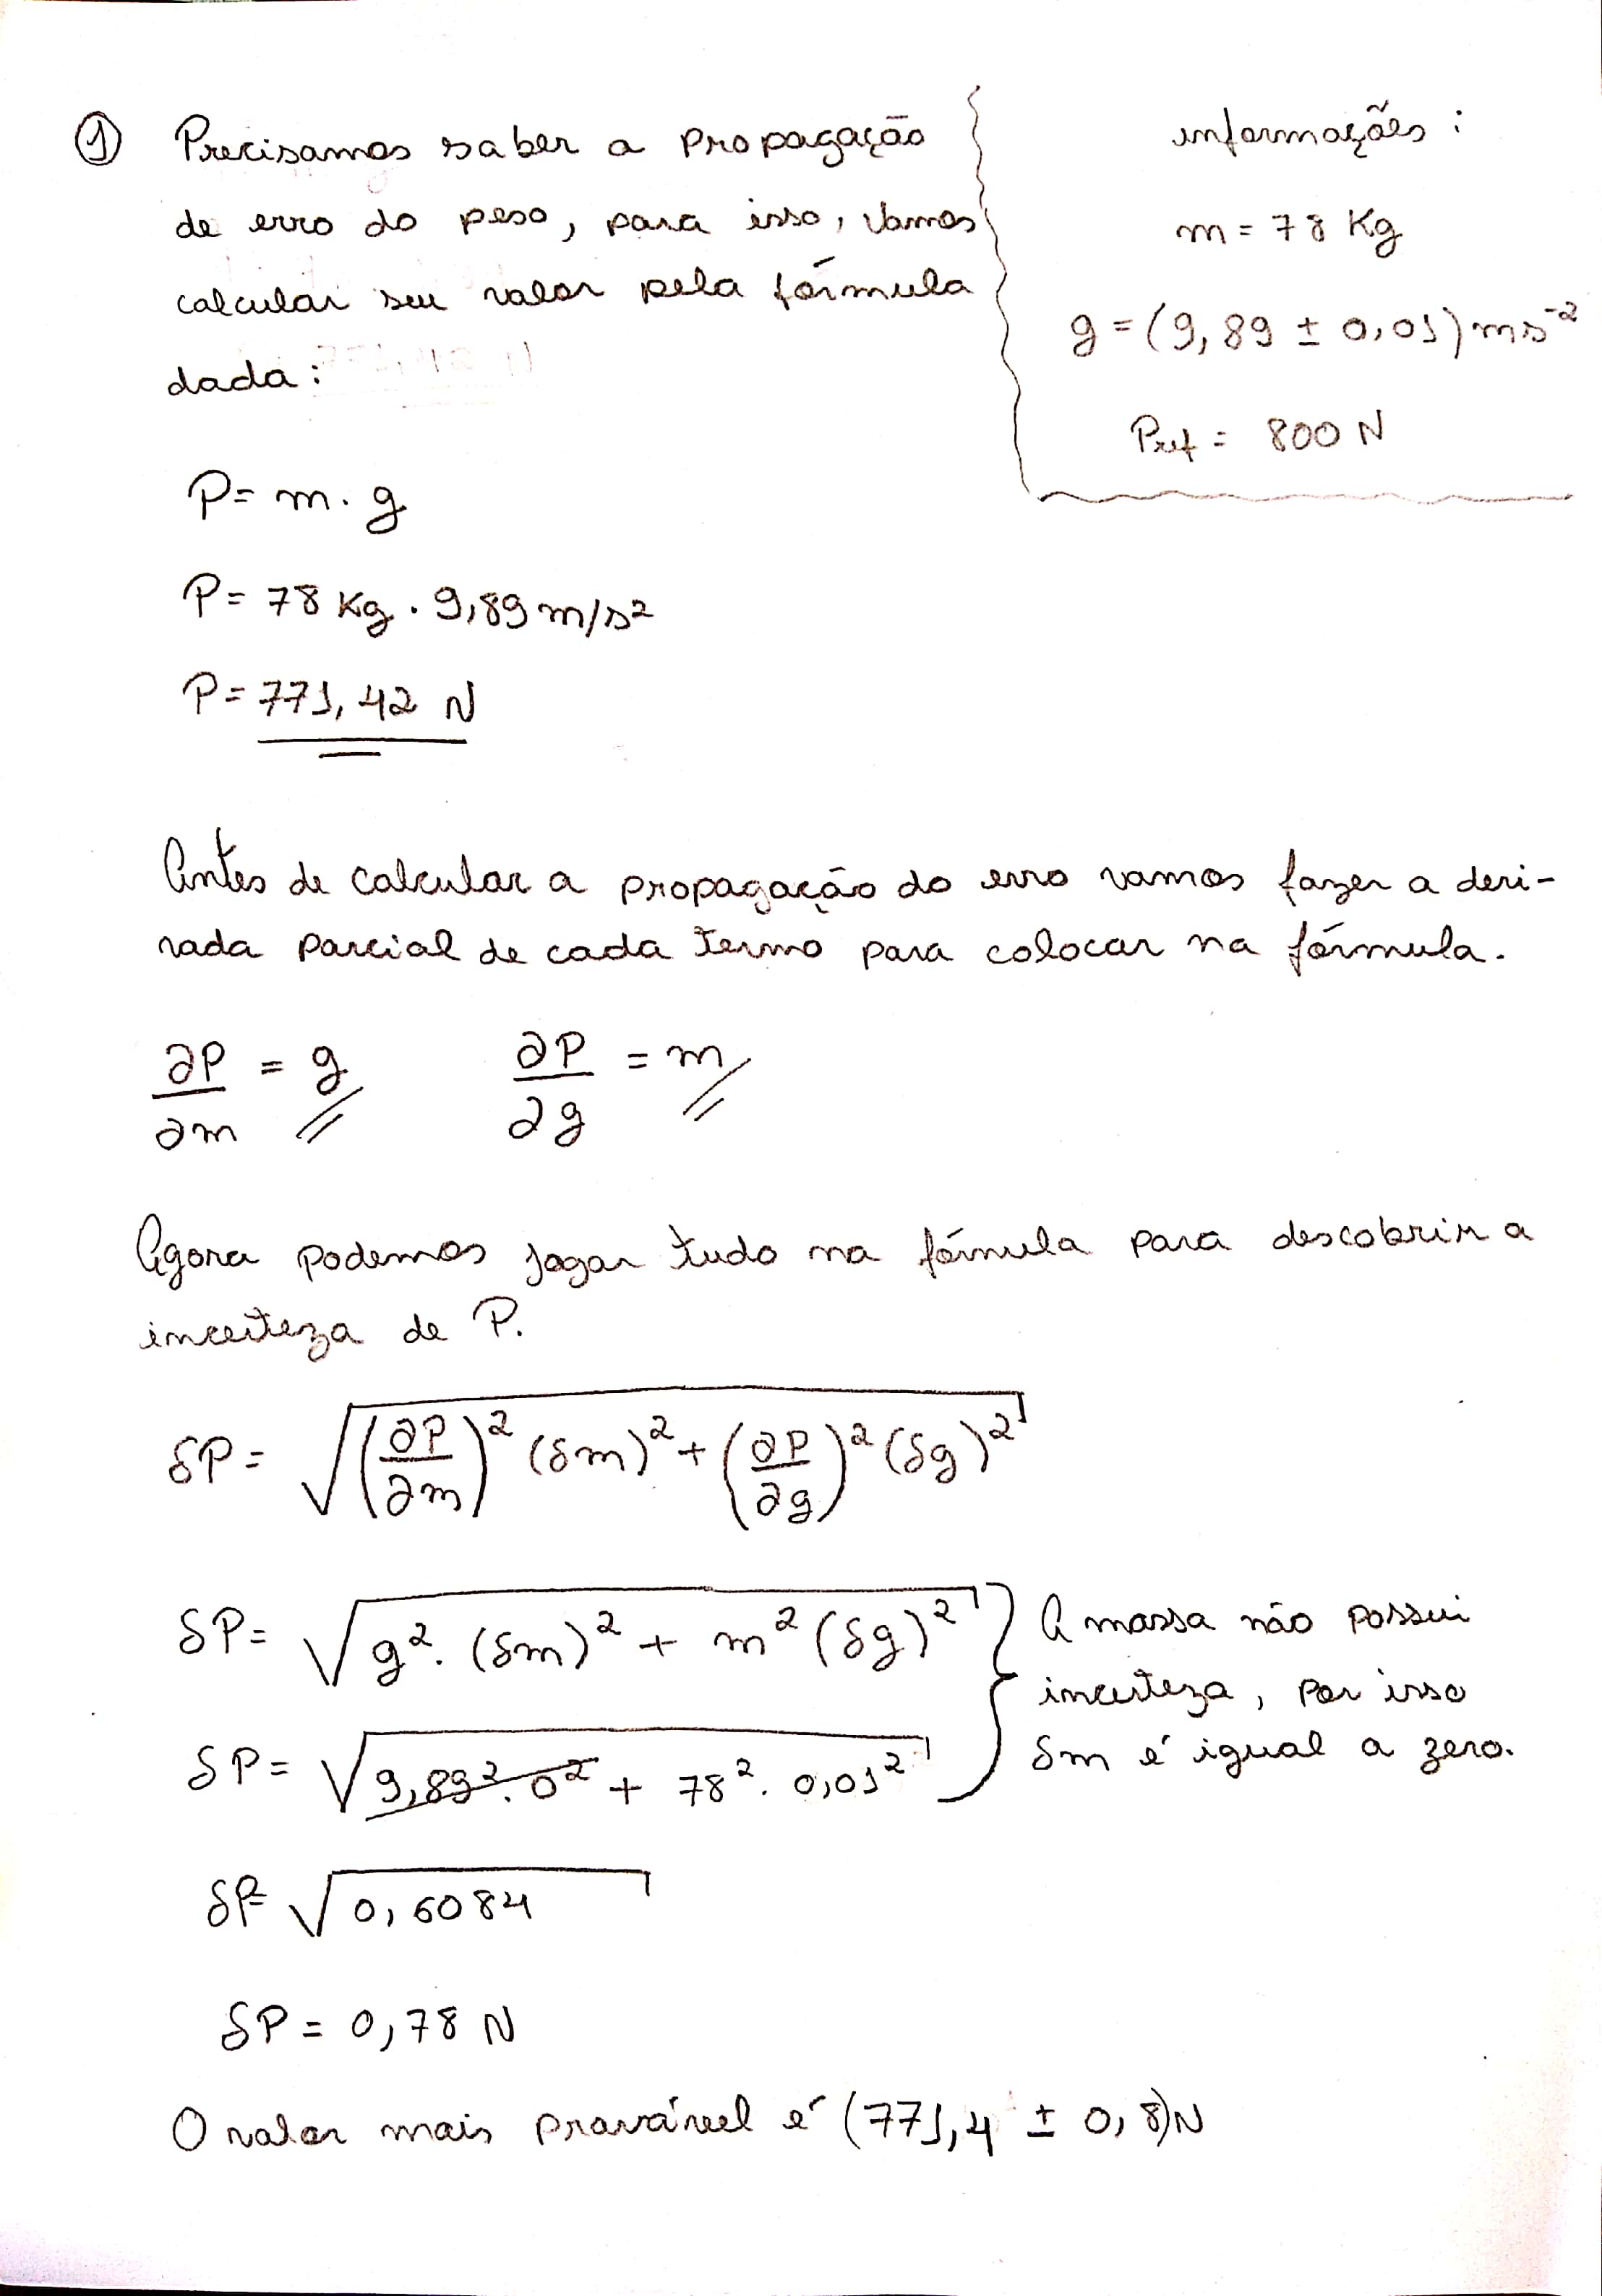 ① Precisamos saber a propagação
de erro do peso, para isso, vamos
calcular seu valor pela fórmula
dada:
informações:
m = 78 Kg
g = (9,89 ± 0,01) ms⁻²
Pref = 800 N
P = m . g
P = 78 Kg . 9,89 m/s²
P = 771,42 N
Antes de calcular a propagação do erro vamos fazer a deri-
vada parcial de cada termo para colocar na fórmula.
∂P/∂m = g    ∂P/∂g = m
Agora podemos jogar tudo na fórmula para descobrir a
incerteza de P.
δP = √((∂P/∂m)² (δm)² + (∂P/∂g)² (δg)²)
δP = √(g² . (δm)² + m² (δg)²)
δP = √(9,89² . 0² + 78² . 0,01²)
A massa não possui
incerteza, por isso
δm é igual a zero.
δP = √0,6084
δP = 0,78 N
O valor mais provável é (771,4 ± 0,8)N